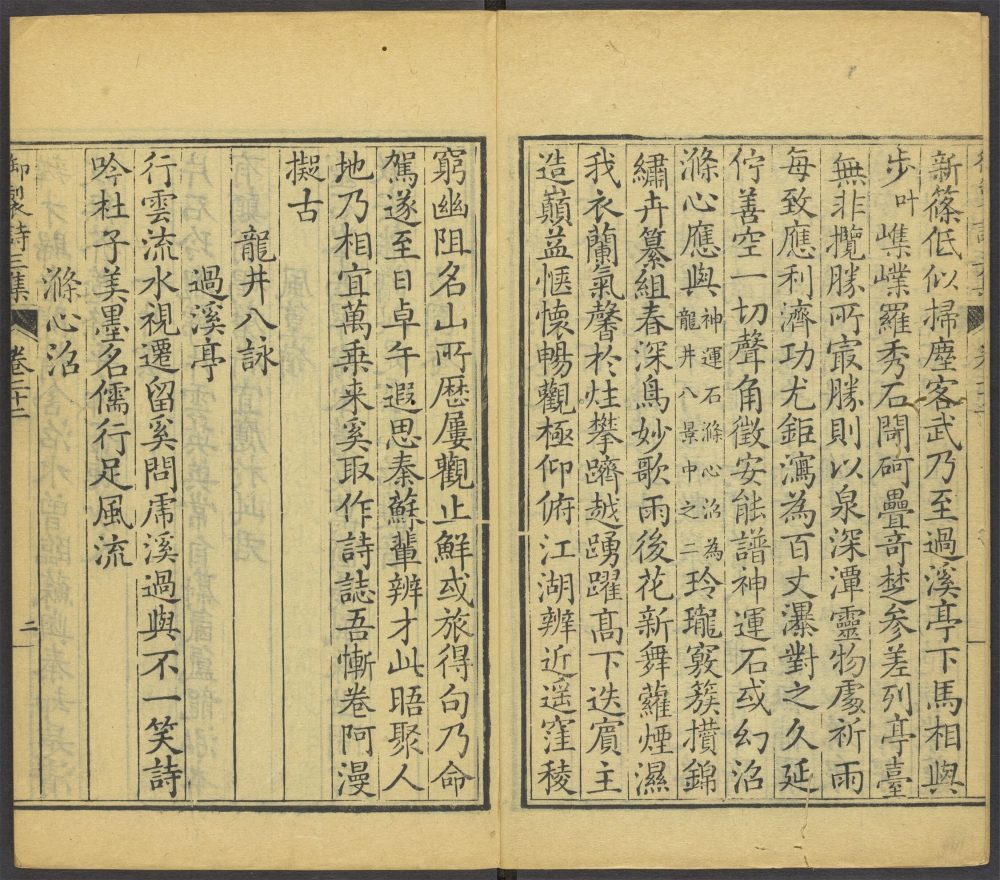 新篠低似掃塵客武乃至過溪亭下馬相與
步叶嶫嶪羅秀石閜砢疊奇楚参差列亭臺
無非攬勝所㝡勝則以泉深潭靈物䖏祈雨
每致應利濟功尤鉅瀉為百丈瀑對之久延
佇善空一切聲角徵安能譜神運石或幻沼
滌心應與神運石滌心沼為龍井八景中之二玲瓏竅簇攢錦
繡卉纂組春深鳥妙歌雨後花新舞蘿煙濕
我衣蘭氣馨於炷攀躋越踴躍髙下迭賔主
造巔益愜懷暢觀極仰俯江湖辨近遥窪稜
窮幽阻名山所歴屢觀止鮮或旅得句乃命
駕遂至日卓午遐思秦蘇輩辨才此晤聚人
地乃相宜萬乗来奚取作詩誌吾慚卷阿漫
擬古
龍井八詠
過溪亭
行雲流水視遷留奚問虎溪過與不一笑詩
吟杜子美墨名儒行足風流
滌心沼
御製詩三集 卷三十二 二